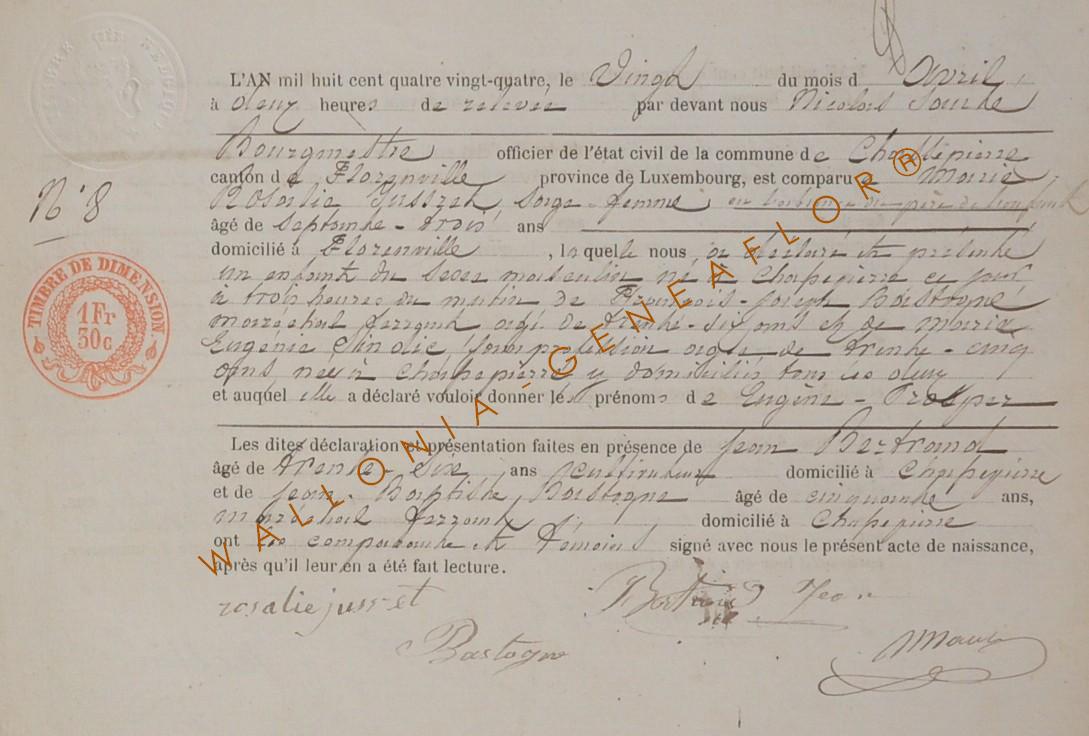 L'AN mil huit cent quatre vingt-quatre, le Vingt du mois d Avril
à deux heures de relevée par devant nous Nicolas
Bourgmestre officier de l'état civil de la commune de Chassepierre
canton de Florenville province de Luxembourg, est comparue Marie
N° 8
Rosalie Jusseret sage-femme en l'absence du père de l'enfant
âgé de septante-trois ans
domicilié à Florenville, laquelle nous a déclaré et présenté
un enfant du sexe masculin né à Chapepierre ce jour
à trois heures du matin de François-Joseph Bastogne
maréchal ferrant âgé de trente-six ans et de Marie
Eugénie sans profession âgée de trente-cinq
ans nés à Chapepierre y domiciliés tous les deux
et auquel elle a déclaré vouloir donner les prénoms de Eugène-Prosper
TIMBRE DE DIMENSION
1 Fr
30 c
Les dites déclaration et présentation faites en présence de Jean Bertrand
âgé de trente-six ans cultivateur domicilié à Chapepierre
et de Jean-Baptiste Bastogne âgé de cinquante ans,
maréchal ferrant domicilié à Chapepierre
ont les comparante et témoins signé avec nous le présent acte de naissance,
après qu'il leur en a été fait lecture.
rosalie jusseret
Bertrand Jean
Bastogne
WALLONIA-GENEAFLOR®